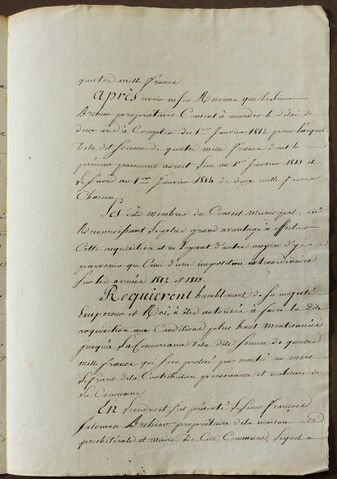 quatre mille francs
Après avoir enfin Reconnu que le Sieur
Archier propriétaire Consent à accorder le délai de
deux ans à Compter du 1er Janvier 1812 pour l'acquit
de la dite somme de quatre mille francs dont le
premier payement auroit lieu au 1er Janvier 1813 et
le Second au 1er Janvier 1814 de deux mille francs
Chacun
Les dits membres du Conseil municipal,
Reconnoissant le plus grand avantage à effectuer
Cette acquisition et ne voyant d'autre moyen d'y
parvenir que Celui d'une imposition extraordinaire
sur les années 1812 et 1813
Requierent humblement de sa majesté
Empereur et Roi, à être autorisés à faire la dite
acquisition aux Conditions plus haut mentionnées
jusqu'à la Concurrence de la dite somme de quatre
mille francs qui sera par moitié au marc
le franc de la Contribution personnelle et mobiliaire de
la Commune
En l'endroit s'est présenté le Sieur français
Salomon Archier propriétaire de la maison
presbitérale et maire de Cette Commune, lequel a